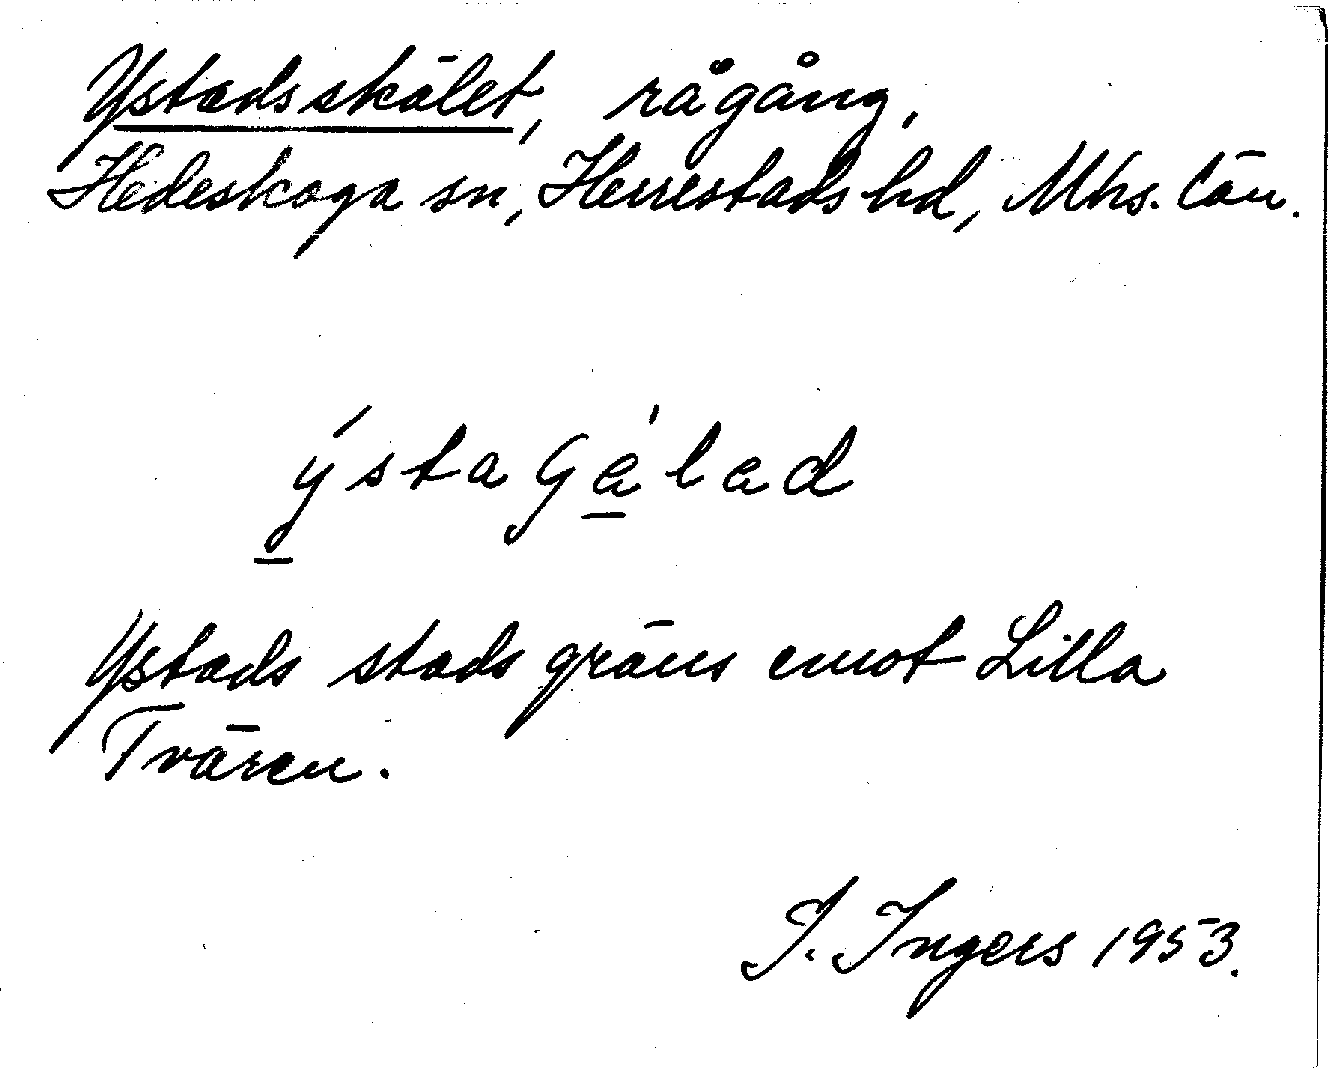 Ystadsskälet, rågång,
Hedeskoga sn, Herrestads hd, Mhs. län.
ýstagálad
Ystads stads gräns emot Lilla
Tvären.
I. Ingers 1953.